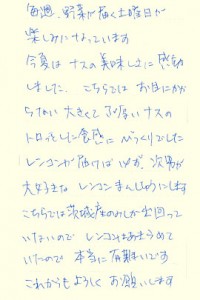 毎週、野菜が届く土曜日が
楽しみになっています
今夏は ナスの美味しさに感動
しました。こちらでは お目にかか
らない 大きくて ナスの
トロッとした食感に びっくりでした
レンコンが届けば 必ず、次男が
大好きな レンコンまんじゅうにします
こちらでは茨城産のみしか出回って
いないので レンコンはあきらめて
いたので 本当に有難いです
これからもよろしく お願いします